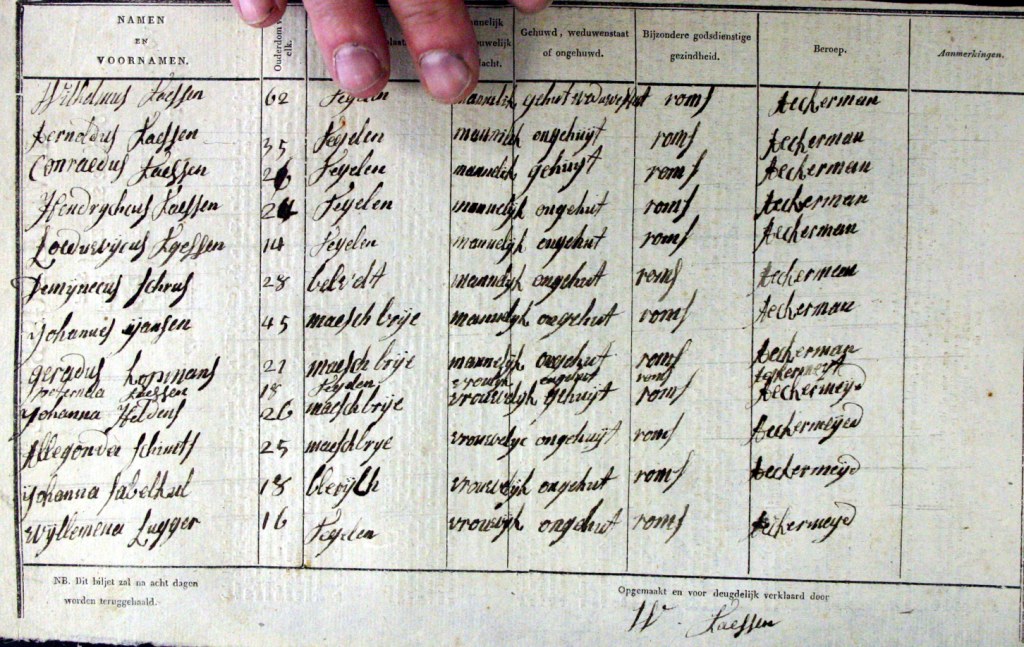 NAMEN EN VOORNAMEN. Ouderdom elk. Gehuwd, weduwenstaat of ongehuwd. Bijzondere godsdienstige gezindheid. Beroep. Aanmerkingen.
Wilhelmus Kaessen 62 Teyelen mannelik roms Aeckerman
Aernoldus Kaessen 35 Teyelen mannelik ongehuyt roms Aeckerman
Conraedus Kaessen 26 Teyelen mannelik gehuyt roms Aeckerman
Hendrychcus Kaessen 24 Teyelen mannelijk ongehut roms Aeckerman
Loduwycus Kaessen 14 Teyelen mannelijk ongehut roms Aeckerman
Demynecus Schrus 28 mannelijk ongehut roms Aeckerman
Yohannes Yansen 45 maesch brije mannelijk ongehut roms Aeckerman
geradus 21 maesch brije mannelijk ongehut roms Aeckerman
Kaessen 18 Teyelen ongehut roms
Yohanna Heldens 26 maeschbrije vrouwelijk gehuyt roms Aeckermeyd
Allegonda 25 maeschbrye ongehuyt roms Aeckermeijed
Yohanna 18 bleryck vrouwelijk ongehut roms Aeckermeijd
Wyllemena Lugger 16 Teyelen vrouwlijk ongehut roms Aeckermeyd
NB. Dit biljet zal na acht dagen
worden teruggehaald.
Opgemaakt en voor deugdelijk verklaard door
W. Kaessen